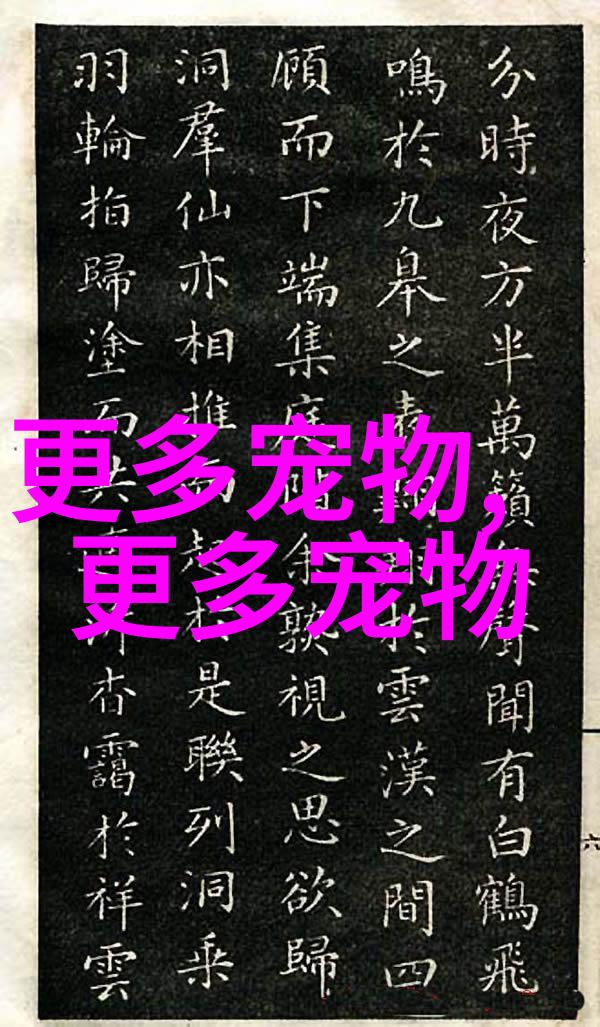 分時夜方半萬籟聲聞有白鶴飛
鳴於九皋之表於雲漢之間四
顧而下端集庭余熟視之思欲歸
洞羣仙亦相推是聯列洞乘
羽輪指歸塗而共杳靄於祥雲
更多宠物,
更多宠物
六